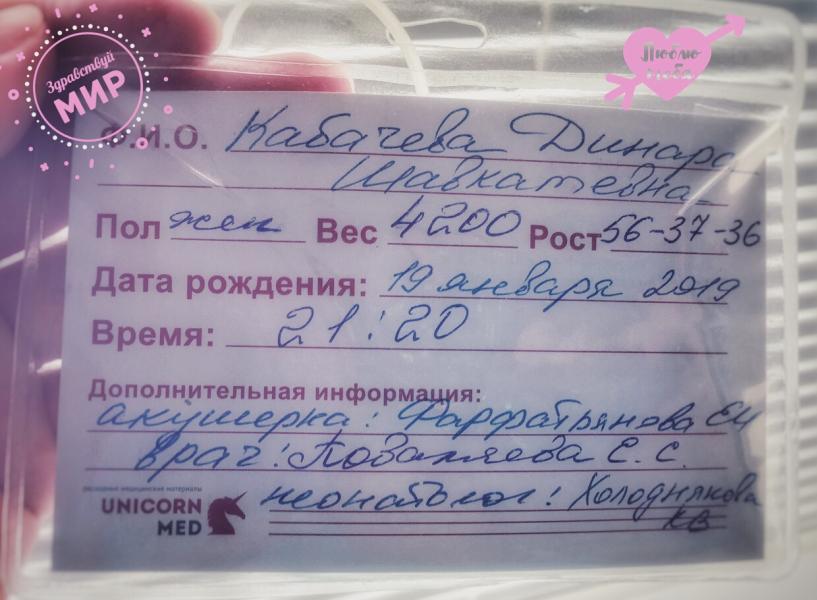 Здравствуй
МИР
Люблю
тебя
Ф.И.О. Кабачева Динара
Шавкатевна
Пол жен Вес 4200 Рост 56-37-36
Дата рождения: 19 января 2019
Время: 21:20
Дополнительная информация:
акушерка: ЕИ
врач: С.С.
расходные медицинские материалы
UNICORN
MED
неонатолог: Холоднякова
КВ